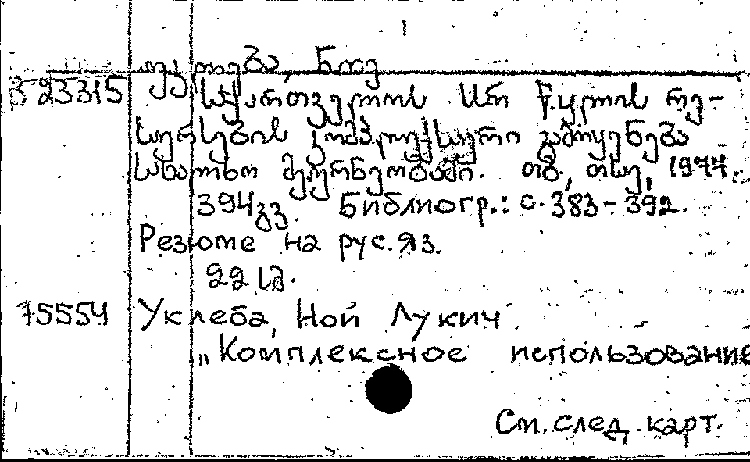 უკლება, ნოე
323315 საქართველოს სსრ წყლის რე-
სურსების კომპლექსური გამოყენება
სახალხო მეურნეობაში. თბ., თსუ, 1974.
394გვ. Библиогр.: с. 383-392.
Резюме на рус.яз.
75554 Уклеба, Ной Лукич
„Комплексное использование
См. след. карт.